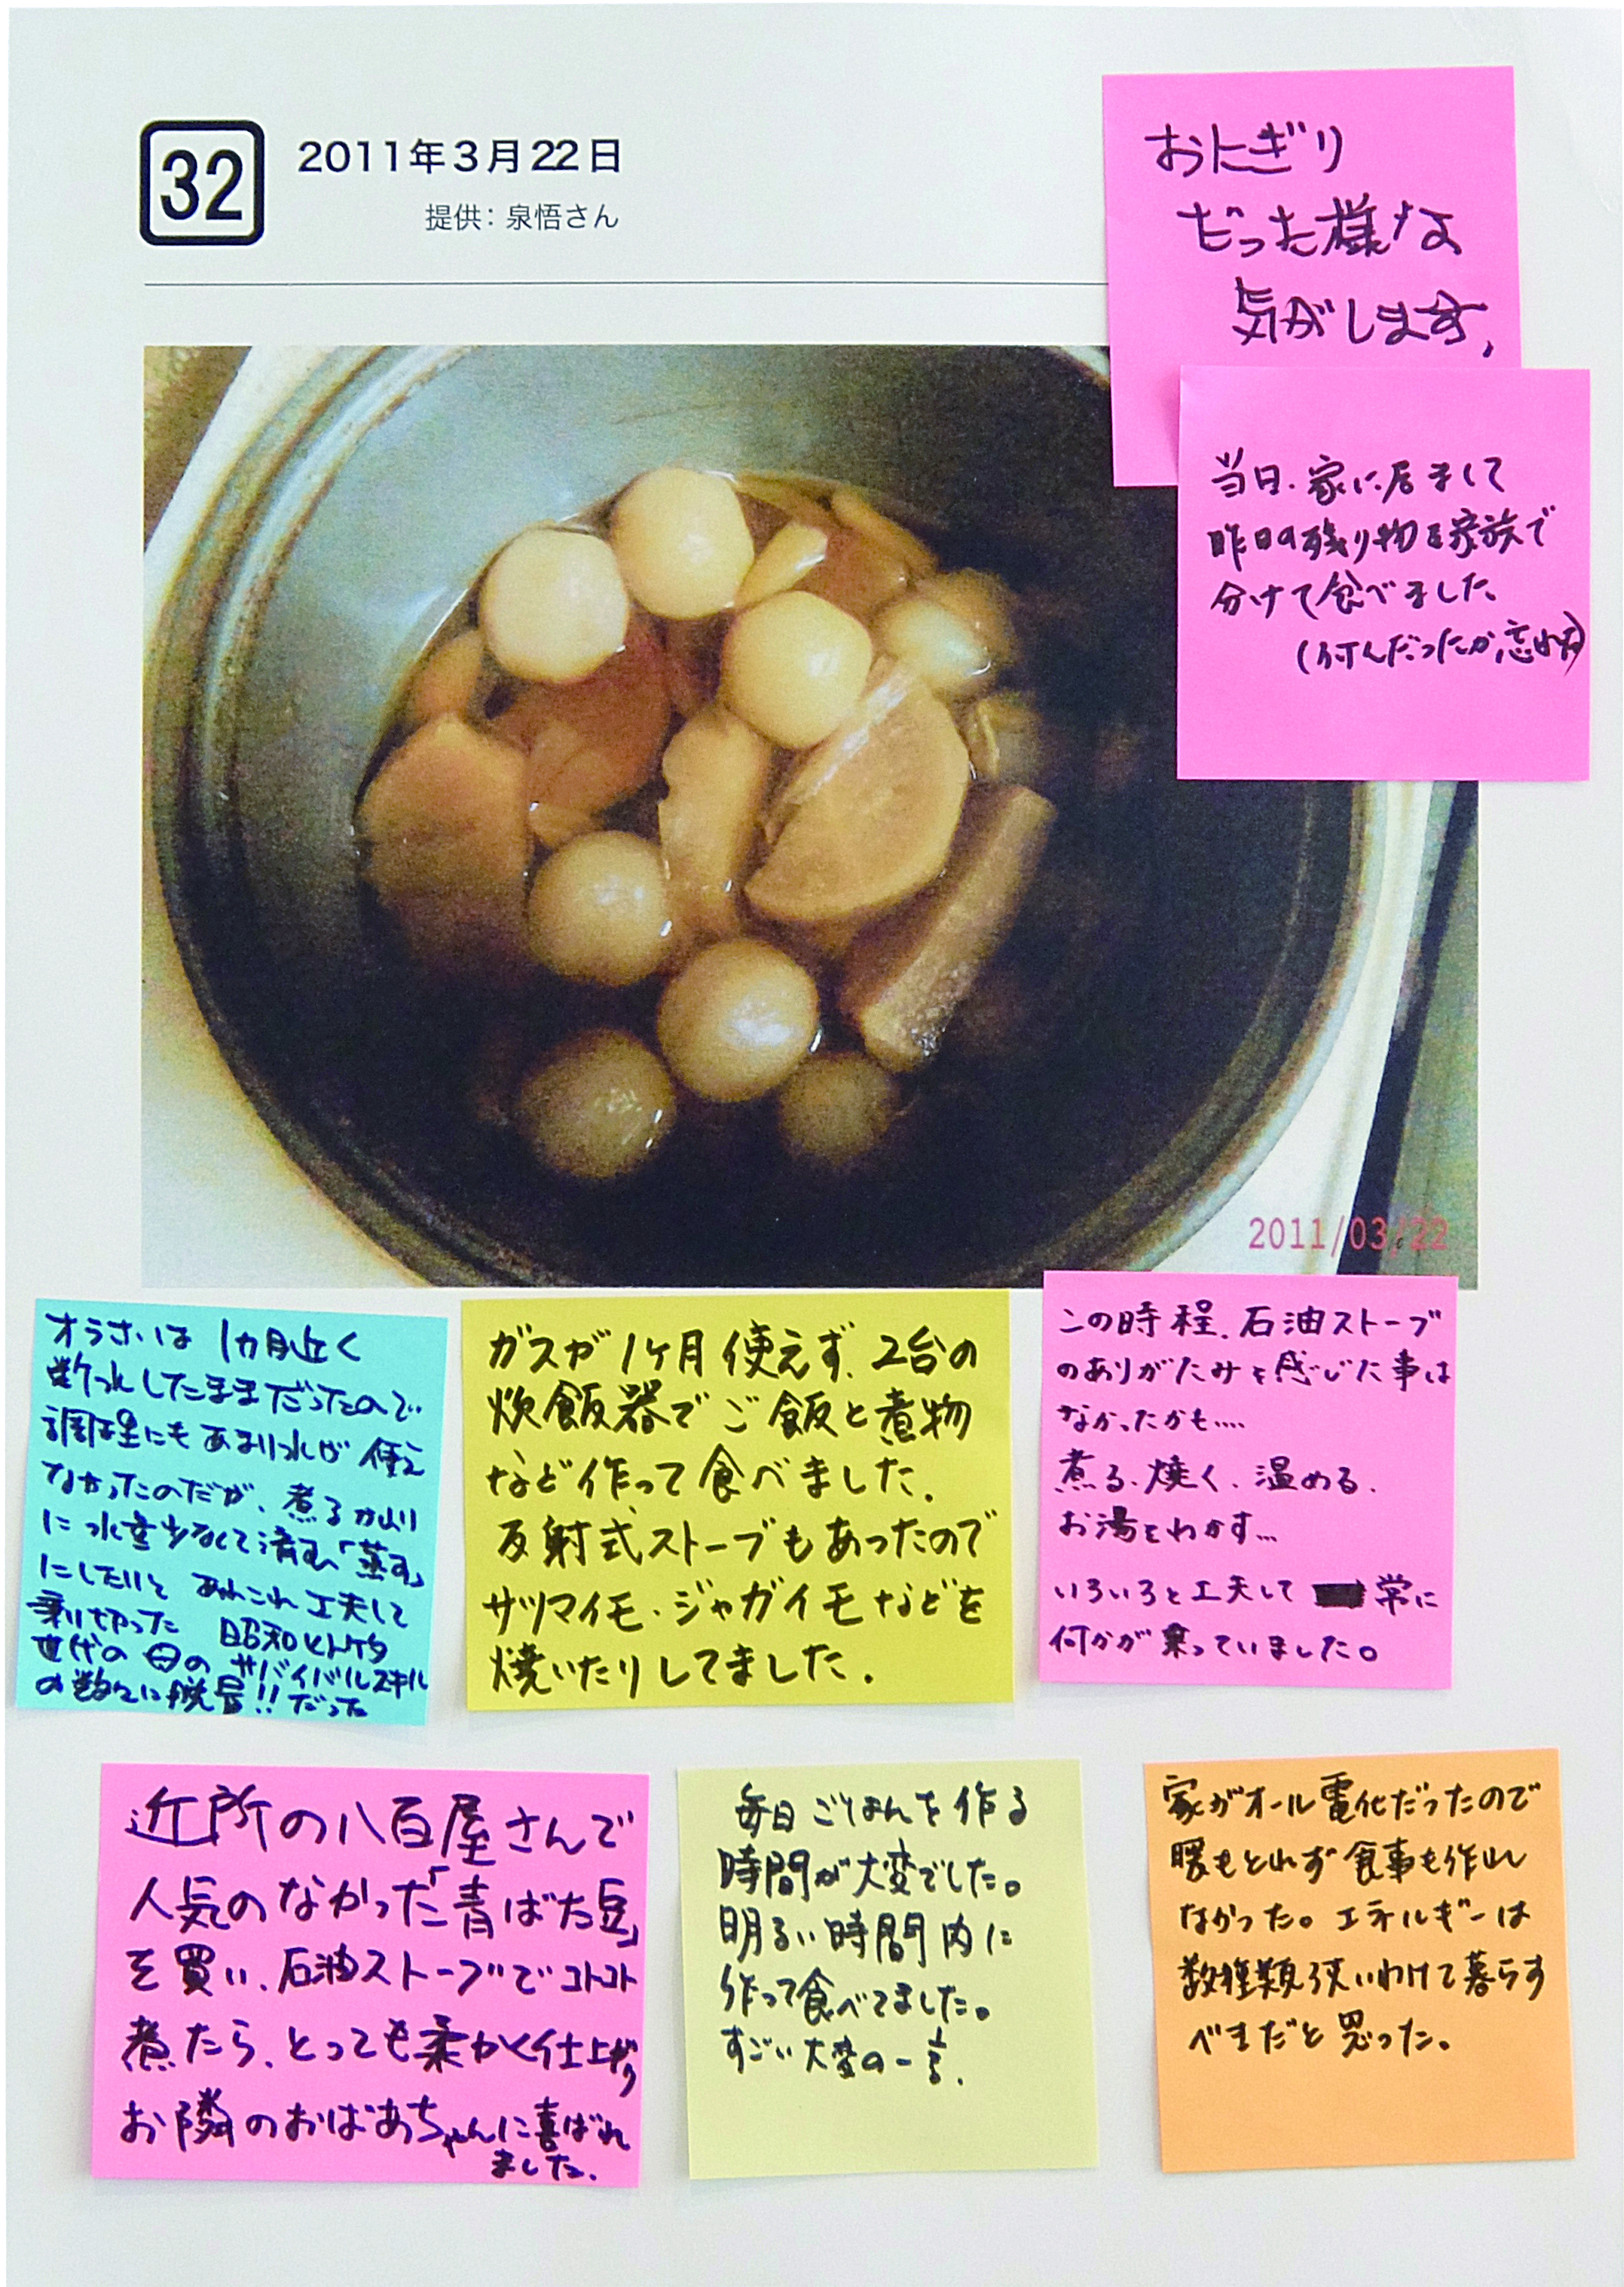 32
2011年3月22日
提供：泉悟さん
おにぎり
だった様な
気がします、
当日、家に居まして
昨日の残り物を家族で
分けて食べました、
（何んだったか忘れた）
2011/03/22
は 1カ月近く
断水したままだったので、
調理にもあまり水が使え
なかったのだが、煮るより
に水量少なくて済む「蒸す」
にしたりと あれこれ工夫して
乗り切った 昭和ヒトケタ
世代の母の サバイバルスキル
の数々に脱帽!! だった
ガスが1ヶ月使えず、2台の
炊飯器でご飯と煮物
など作って食べました．
反射式ストーブもあったので
サツマイモ・ジャガイモなどを
焼いたりしてました．
この時程、石油ストーブ
のありがたみを感じた事は
なかったかも....
煮る、焼く、温める、
お湯をわかす...
いろいろと工夫して 常に
何かが乗っていました。
近所の八百屋さんで
人気のなかった「青ばた豆」
を買い、石油ストーブでコトコト
煮たら、とっても柔かく仕上がり
お隣のおばあちゃんに喜ばれ
ました．
毎日ごはんを作る
時間が大変でした。
明るい時間内に
作って食べてました。
すごい大変の一言．
家がオール電化だったので
暖もとれず食事も作れ
なかった。エネルギーは
数種類使いわけて暮らす
べきだと思った。